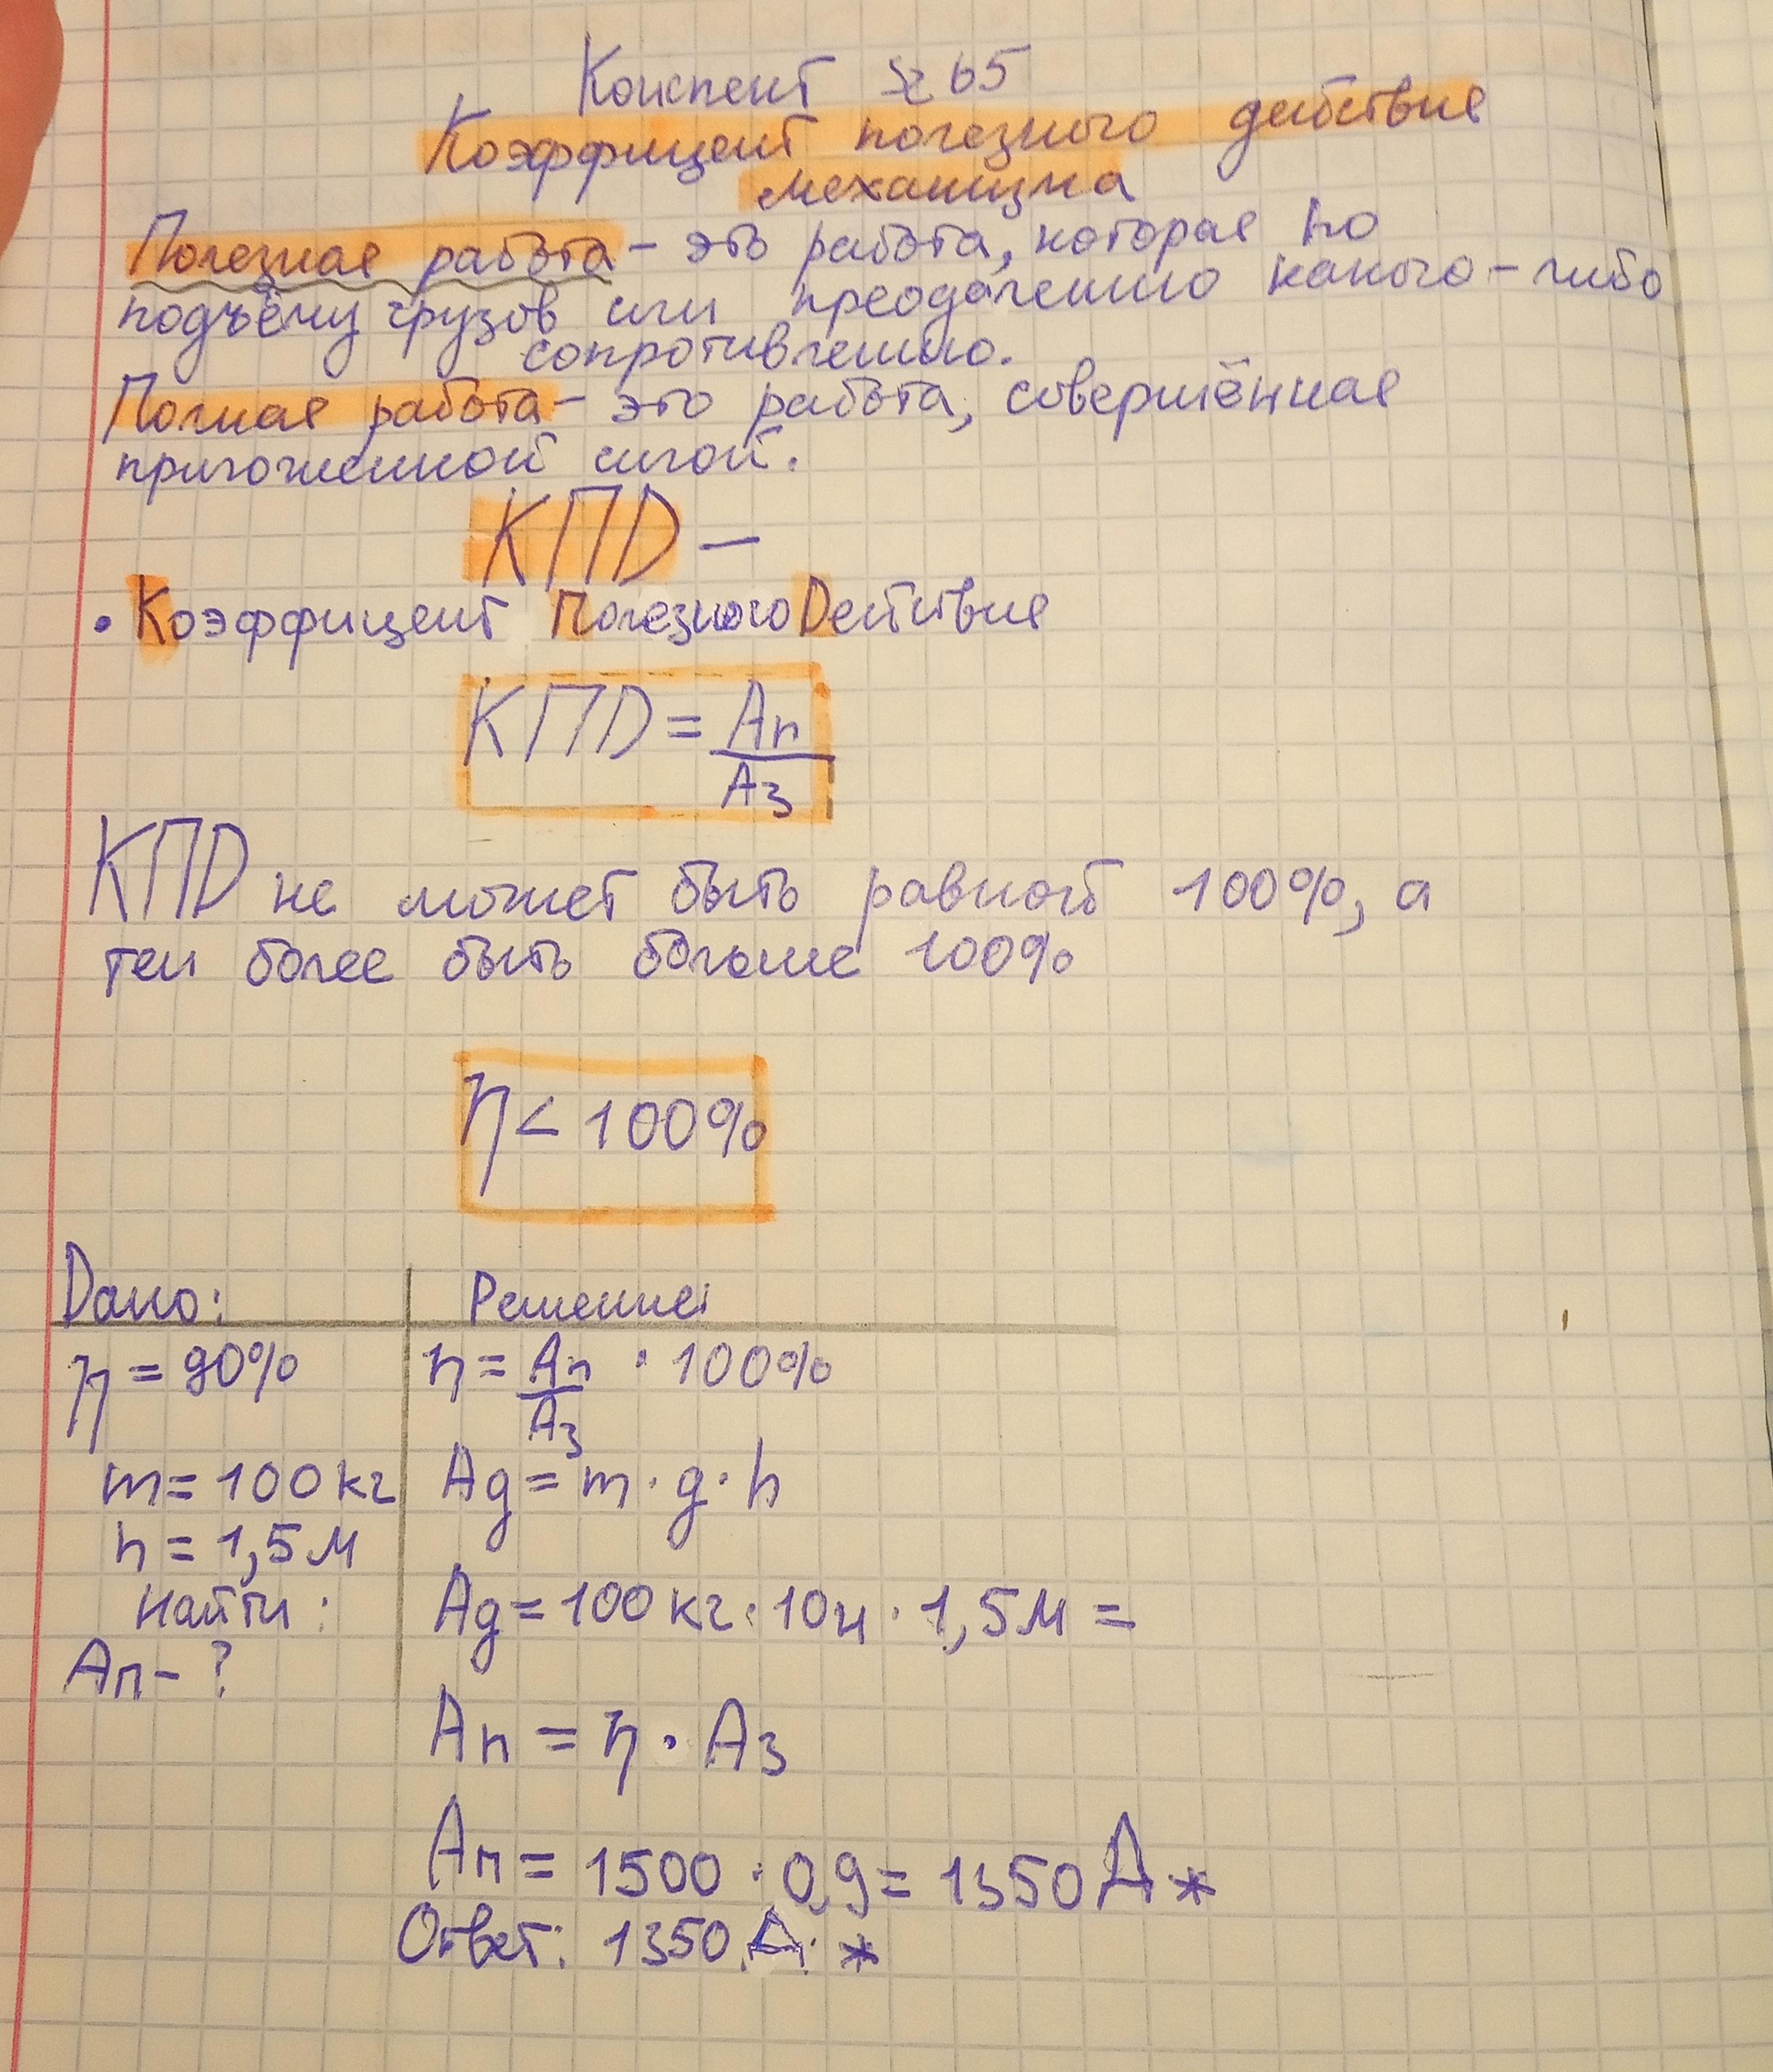 Конспект §65
Коэффицент полезного действия
механизма
Полезная работа - это работа, которая по
подъёму грузов или преодалению какого-либо
сопротивлению.
Полная работа - это работа, совершённая
приложенной силой.
КПD -
• Коэффицент Полезного Dействия
КПD = Aп/Aз
КПD не может быть равной 100%, а
тем более быть больше 100%
η < 100%
Dано: Решение:
η = 90% η = Aп/Aз · 100%
m = 100 кг Ag = m · g · h
h = 1,5 м
найти: Ag = 100 кг · 10н · 1,5 м =
Aп - ?
Aп = η · Aз
Aп = 1500 · 0,9 = 1350 Дж
Ответ: 1350 Дж